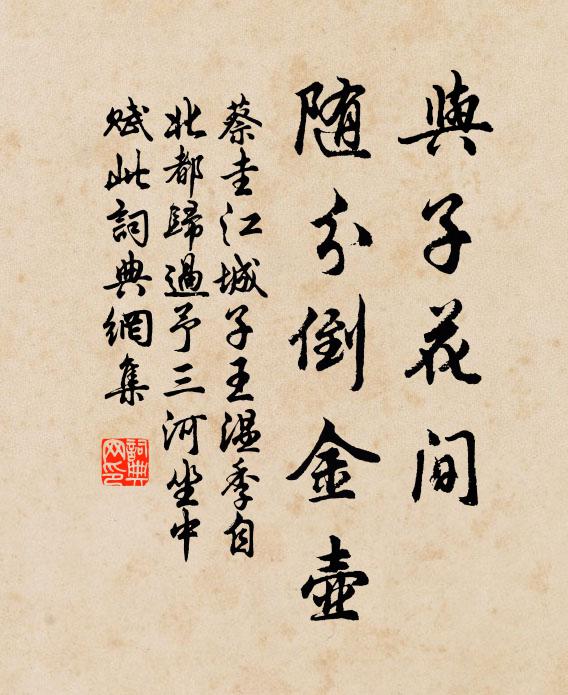 與子花間
隨分倒金壺
蔡圭江城子王溫季自
北都歸過予三河坐中
賦此詞典網集
詞典網印